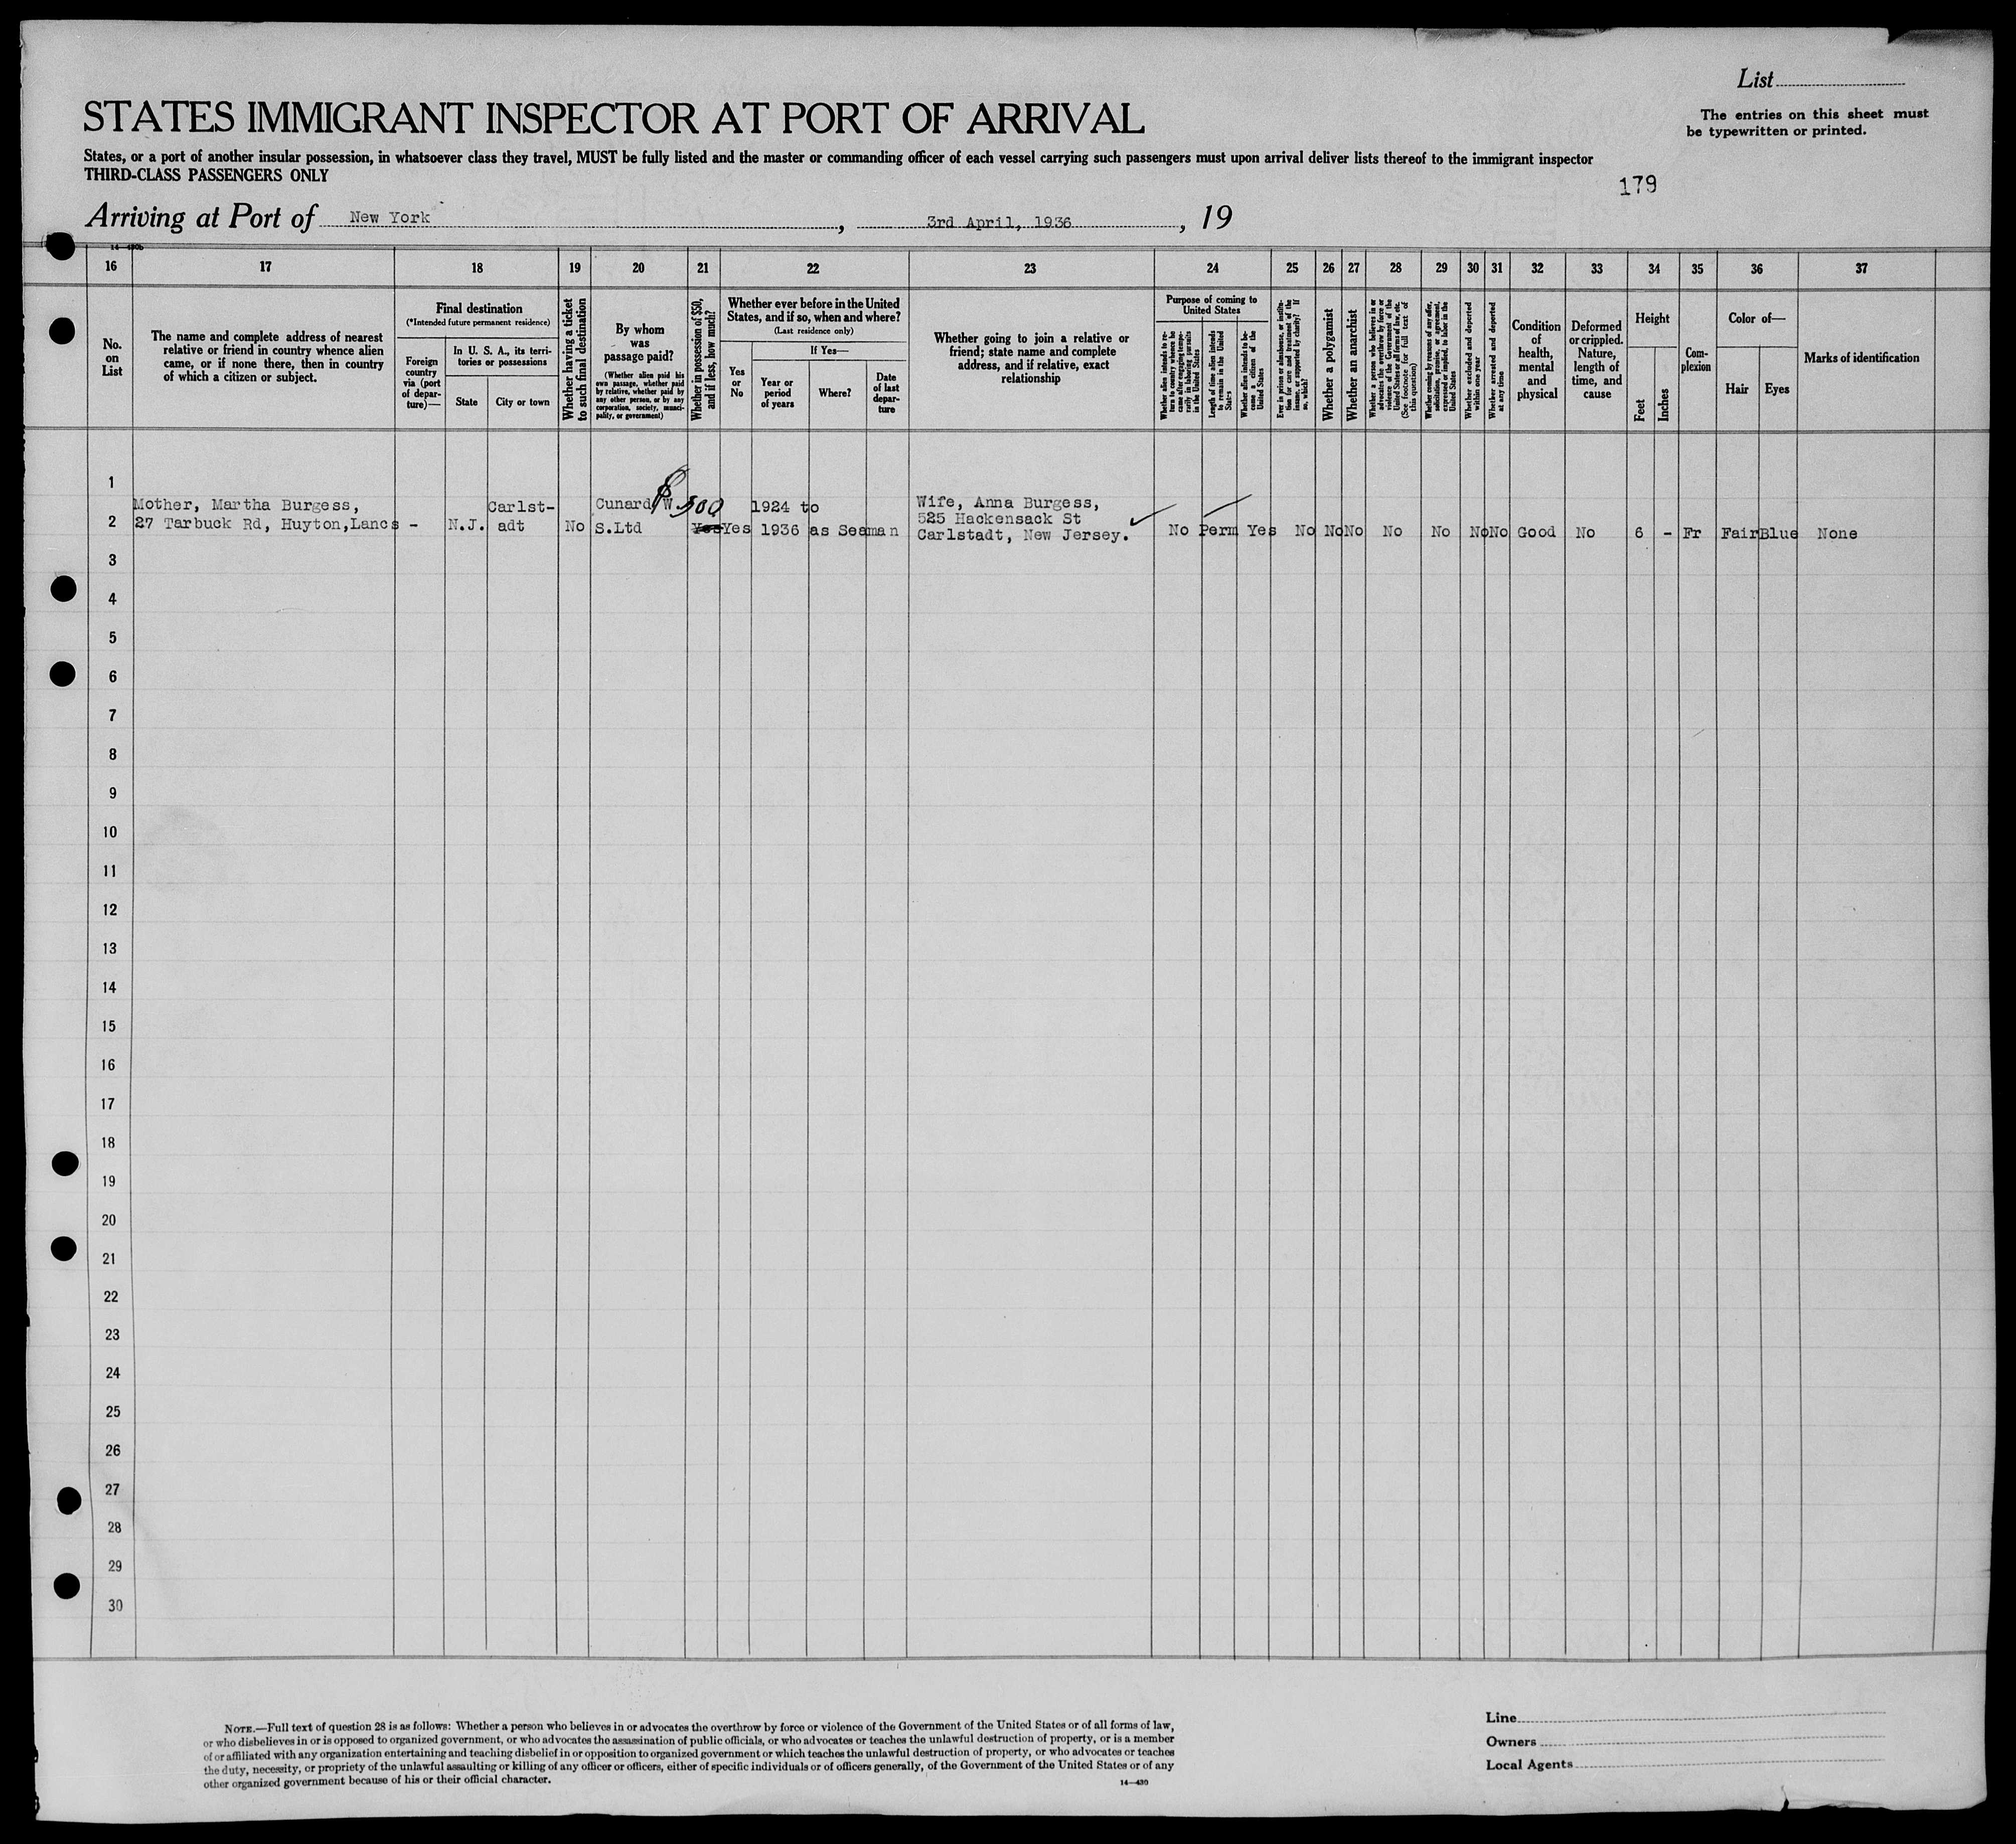 List
STATES IMMIGRANT INSPECTOR AT PORT OF ARRIVAL
The entries on this sheet must
be typewritten or printed.
States, or a port of another insular possession, in whatsoever class they travel, MUST be fully listed and the master or commanding officer of each vessel carrying such passengers must upon arrival deliver lists thereof to the immigrant inspector
THIRD-CLASS PASSENGERS ONLY
179
Arriving at Port of New York, 3rd April, 1936, 19
14—430b
16 17 18 19 20 21 22 23 24 25 26 27 28 29 30 31 32 33 34 35 36 37
No.
on
List
The name and complete address of nearest
relative or friend in country whence alien
came, or if none there, then in country
of which a citizen or subject.
Final destination
(*Intended future permanent residence)
Foreign
country
via (port
of depar-
ture)—
In U. S. A., its terri-
tories or possessions
State
City or town
Whether having a ticket
to such final destination
By whom
was
passage paid?
(Whether alien paid his
own passage, whether paid
by relative, whether paid by
any other person, or by any
corporation, society, munici-
pality, or government)
Whether in possession of $50,
and if less, how much?
Whether ever before in the United
States, and if so, when and where?
(Last residence only)
Yes
or
No
If Yes—
Year or
period
of years
Where?
Date
of last
depar-
ture
Whether going to join a relative or
friend; state name and complete
address, and if relative, exact
relationship
Purpose of coming to
United States
Whether alien intends to re-
turn to country whence he
came after engaging tempo-
rarily in laboring pursuits
in the United States
Length of time alien intends
to remain in the United
States
Whether alien intends to be-
come a citizen of the
United States
Ever in prison or almshouse, or institu-
tion for care and treatment of the
insane, or supported by charity? If
so, which?
Whether a polygamist
Whether an anarchist
Whether a person who believes in or
advocates the overthrow by force or
violence of the Government of the
United States or all forms of law, etc.
(See footnote for full text of
this question)
Whether coming by reasons of any offer,
solicitation, promise, or agreement,
expressed or implied, to labor in the
United States
Whether excluded and deported
within one year
Whether arrested and deported
at any time
Condition
of
health,
mental
and
physical
Deformed
or crippled.
Nature,
length of
time, and
cause
Height
Feet
Inches
Com-
plexion
Color of—
Hair
Eyes
Marks of identification
1
Mother, Martha Burgess, Carlst- Cunard W. $500 1924 to Wife, Anna Burgess,
525 Hackensack St
2 27 Tarbuck Rd, Huyton,Lancs - N.J. adt No S.Ltd Yes Yes 1936 as Seaman Carlstadt, New Jersey. No Perm Yes No No No No No No No Good No 6 - Fr Fair Blue None
3
4
5
6
7
8
9
10
11
12
13
14
15
16
17
18
19
20
21
22
23
24
25
26
27
28
29
30
NOTE.—Full text of question 28 is as follows: Whether a person who believes in or advocates the overthrow by force or violence of the Government of the United States or of all forms of law,
or who disbelieves in or is opposed to organized government, or who advocates the assassination of public officials, or who advocates or teaches the unlawful destruction of property, or is a member
of or affiliated with any organization entertaining and teaching disbelief in or opposition to organized government or which teaches the unlawful destruction of property, or who advocates or teaches
the duty, necessity, or propriety of the unlawful assaulting or killing of any officer or officers, either of specific individuals or of officers generally, of the Government of the United States or of any
other organized government because of his or their official character.
14—430
Line
Owners
Local Agents